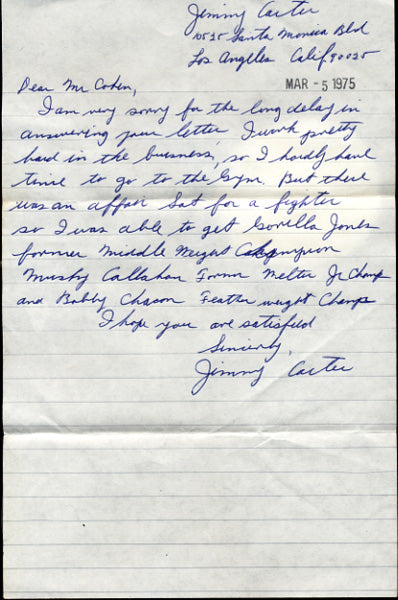 Jimmy Carter
10535 Santa Monica Blvd
Los Angeles Calif 90025
Dear Mr Cohen,
MAR - 5 1975
I am very sorry for the long delay in
answering your letter I work pretty
hard in the business, so I hardly have
time to go to the Gym. But there
was an affair Sat for a fighter
so I was able to get Gorilla Jones
former Middle Weight Champion
Mushy Callahan Former Welter Jr Champ
and Bobby Chacon Feather weight Champ
I hope you are satisfied
Sincerly,
Jimmy Carter